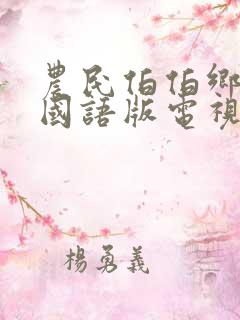 農民伯伯鄉
國語版電視
楊勇義